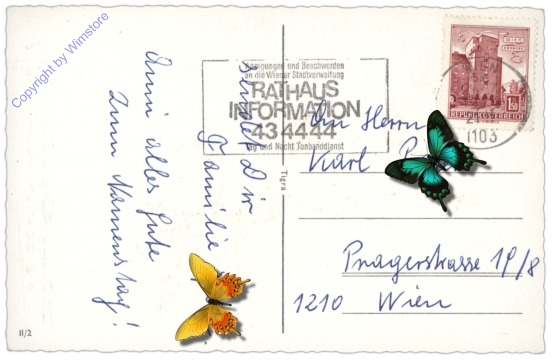 Copyright by Wimstore
alles Gute
zum Namenstag!
Familie
Anregungen und Beschwerden
an die Wiener Stadtverwaltung
RATHAUS
INFORMATION
43 44 44
Tag und Nacht Tonbanddienst
REPUBLIK ÖSTERREICH
1103
An Herrn
Karl
Pragerstrasse 19/8
1210 Wien
Tigra
II/2